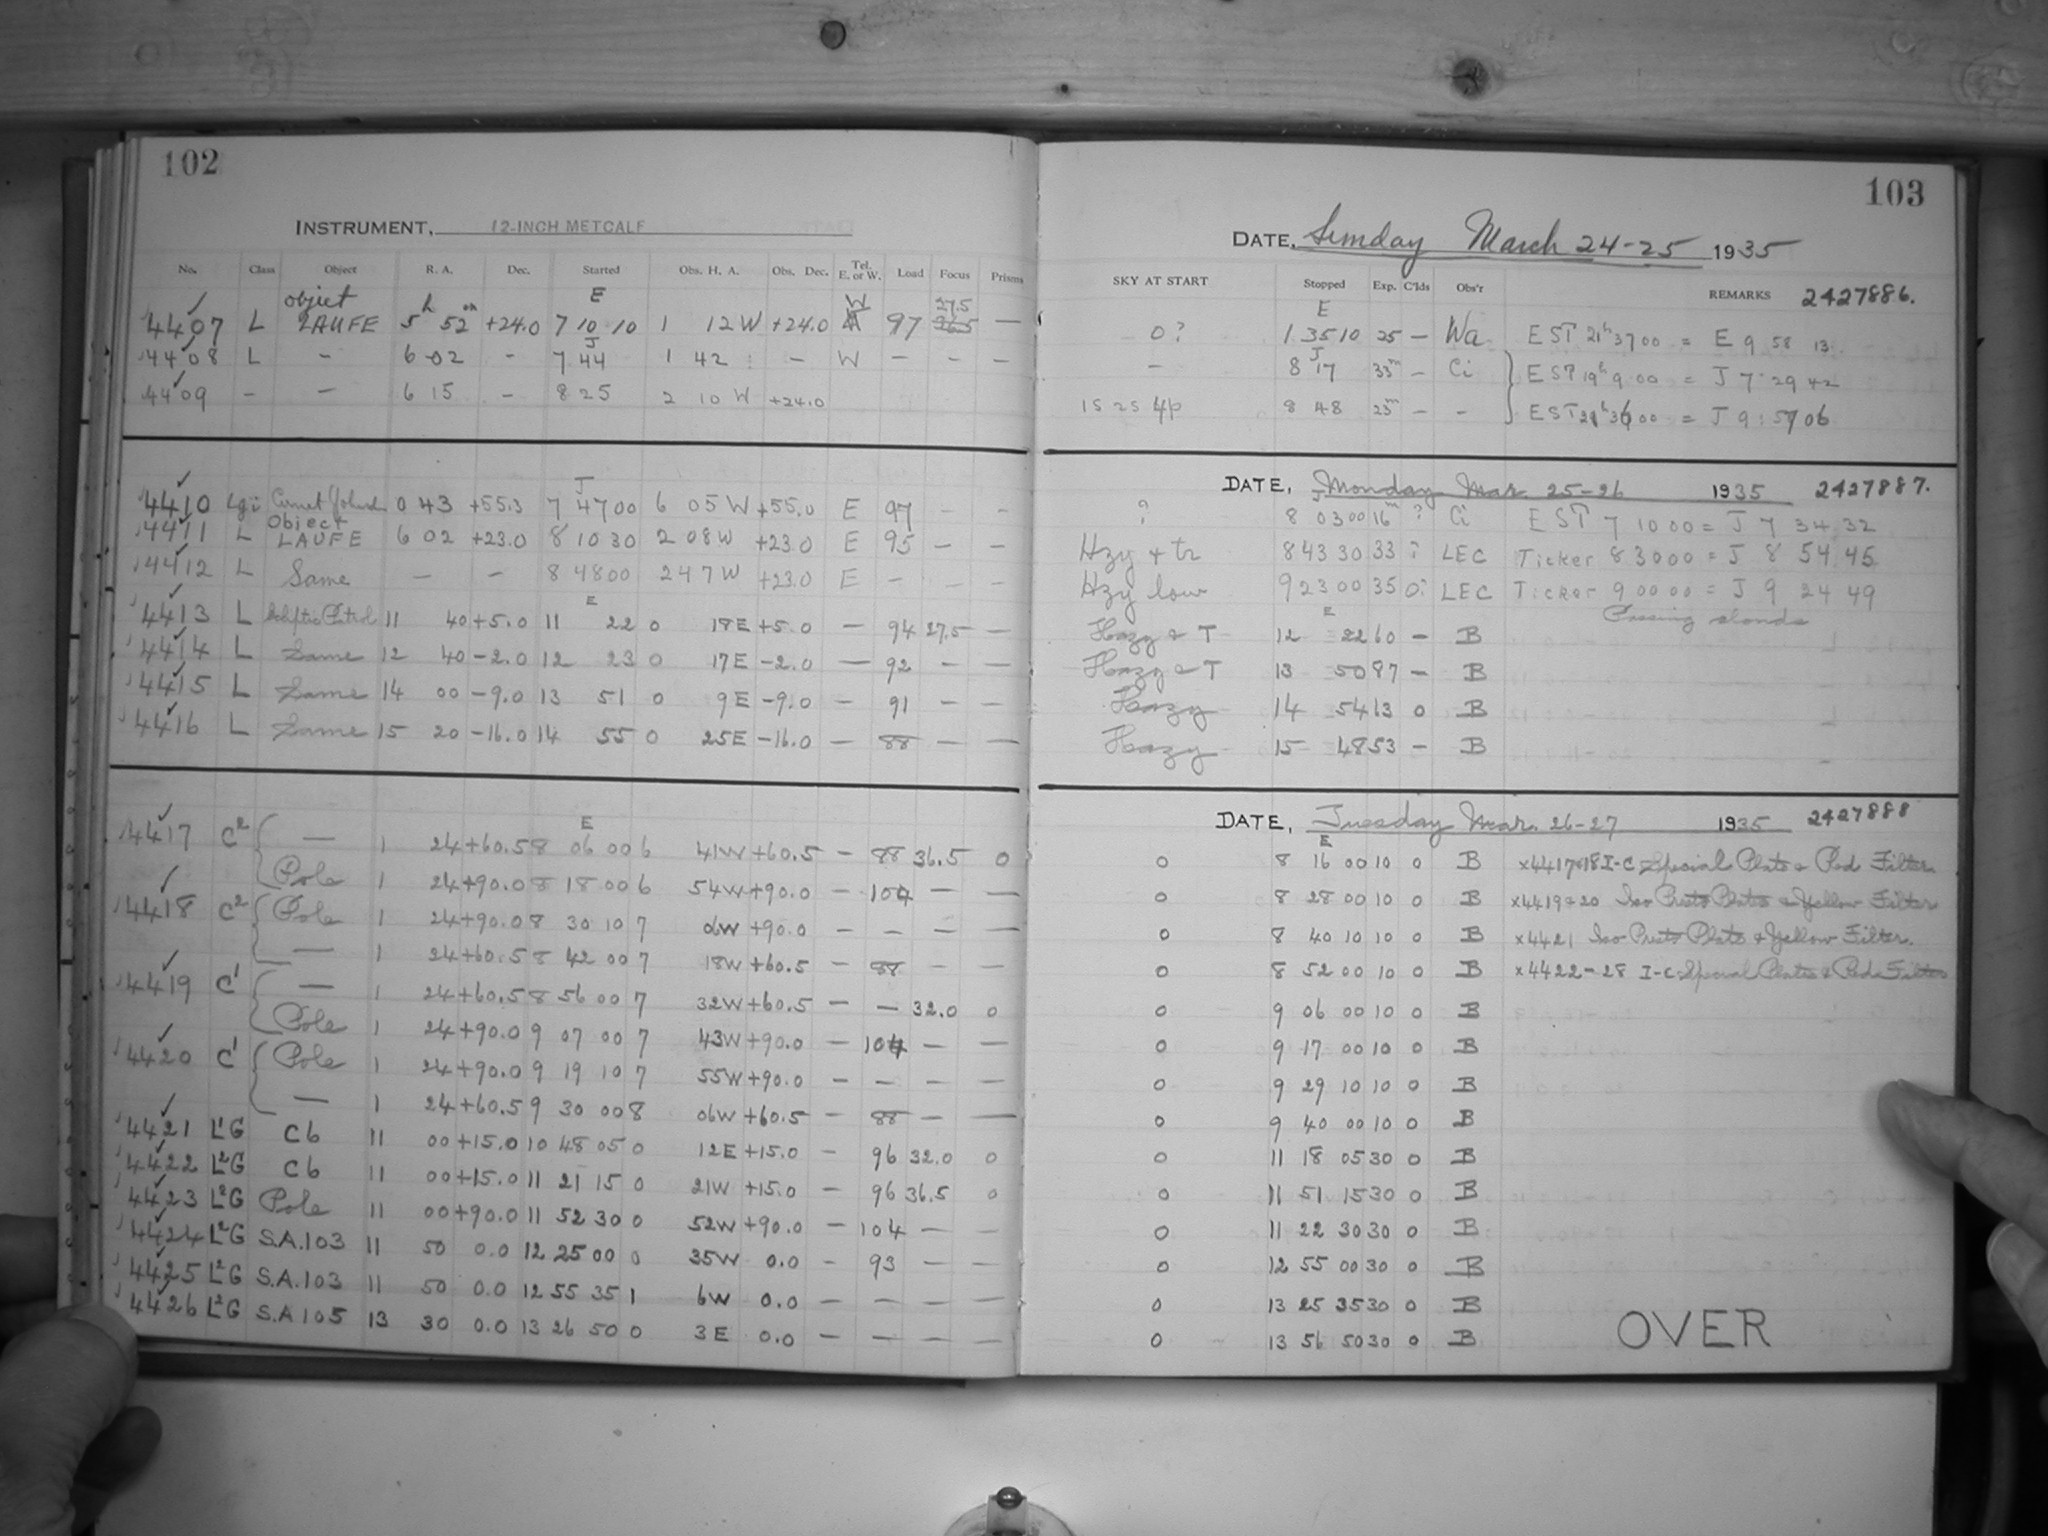 102
INSTRUMENT, 12-INCH METCALF
No. Class Object R. A. Dec. Started Obs. H. A. Obs. Dec. Tel. E. or W. Load Focus Prisms
object E W 27.5
4407 L LAUFE 5h 52m +24.0 7 10 10 1 12 W +24.0 97 —
J
4408 L - 6 02 - 7 44 1 42 : - W - - -
4409 - - 6 15 - 8 25 2 10 W +24.0
J
4410 0 43 +55.3 7 47 00 6 05 W +55.0 E 97 - -
Object
4411 L LAUFE 6 02 +23.0 8 10 30 2 08 W +23.0 E 95 - -
4412 L Same - - 8 48 00 2 47 W +23.0 E - - -
E
4413 L 11 40 +5.0 11 22 0 18 E +5.0 - 94 27.5 -
4414 L Same 12 40 -2.0 12 23 0 17 E -2.0 — 92 - -
4415 L Same 14 00 -9.0 13 51 0 9 E -9.0 - 91 - -
4416 L Same 15 20 -16.0 14 55 0 25 E -16.0 - 88 — —
E
4417 C2 — 1 24 +60.5 8 06 00 6 41 W +60.5 - 88 36.5 0
Pole 1 24 +90.0 8 18 00 6 54 W +90.0 - 104 — —
4418 C2 Pole 1 24 +90.0 8 30 10 7 06 W +90.0 - - - —
— 1 24 +60.5 8 42 00 7 18 W +60.5 - 88 - —
4419 C1 — 1 24 +60.5 8 56 00 7 32 W +60.5 - - 32.0 0
Pole 1 24 +90.0 9 07 00 7 43 W +90.0 - 104 — —
4420 C1 Pole 1 24 +90.0 9 19 10 7 55 W +90.0 - - - —
— 1 24 +60.5 9 30 00 8 06 W +60.5 - 88 — —
4421 L1G C6 11 00 +15.0 10 48 05 0 12 E +15.0 - 96 32.0 0
4422 L2G C6 11 00 +15.0 11 21 15 0 21 W +15.0 - 96 36.5 0
4423 L2G Pole 11 00 +90.0 11 52 30 0 52 W +90.0 - 104 — —
4424 L2G S.A.103 11 50 0.0 12 25 00 0 35 W 0.0 - 93 — —
4425 L2G S.A.103 11 50 0.0 12 55 35 1 6 W 0.0 - - - —
4426 L2G S.A 105 13 30 0.0 13 26 50 0 3 E 0.0 - - - —
103
DATE, Sunday March 24-25 1935
SKY AT START Stopped Exp. C'lds Obs'r REMARKS 2427886.
E
0? 1 35 10 25 — Wa EST 21h 37 00 = E 9 58 13
J
- 8 17 33m - Ci EST 19h 9 00 = J 7 29 42
1s 2s 4p 8 48 23m - - = J 9 : 57 06
DATE, Monday Mar. 25-26 1935 2427887.
J
? 8 03 00 16m ? Ci EST 7 10 00 = J 7 34 32
Hzy + tr 8 43 30 33 ? LEC Ticker 8 30 00 = J 8 54 45
Hzy low 9 23 00 35 0? LEC Ticker 9 00 00 = J 9 24 49
E Passing clouds
Hazy & T 12 22 60 - B
Hazy & T 13 50 87 - B
Hazy 14 54 63 0 B
Hazy 15 48 53 - B
DATE, Tuesday Mar. 26-27 1935 2427888
E
0 8 16 00 10 0 B x4417&18 I-C Special Plate & Red Filter
0 8 28 00 10 0 B x4419&20 Iso Presto Plates & Yellow Filter
0 8 40 10 10 0 B x4421 Iso Presto Plate & Yellow Filter.
0 8 52 00 10 0 B x4422-28 I-C Special Plates & Red Filter
0 9 06 00 10 0 B
0 9 17 00 10 0 B
0 9 29 10 10 0 B
0 9 40 00 10 0 B
0 11 18 05 30 0 B
0 11 51 15 30 0 B
0 11 22 30 30 0 B
0 12 55 00 30 0 B
0 13 25 35 30 0 B
0 13 56 50 30 0 B
OVER